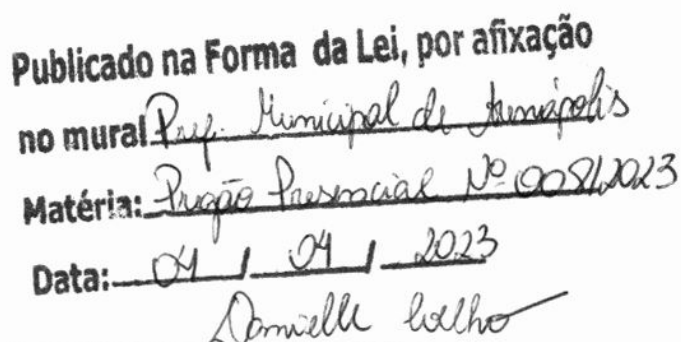 Publicado na Forma da Lei, por afixação
no mural Pref. Municipal de
Matéria: Pregão Presencial Nº 008/2023
Data: 04 / 04 / 2023
Danielle Coelho